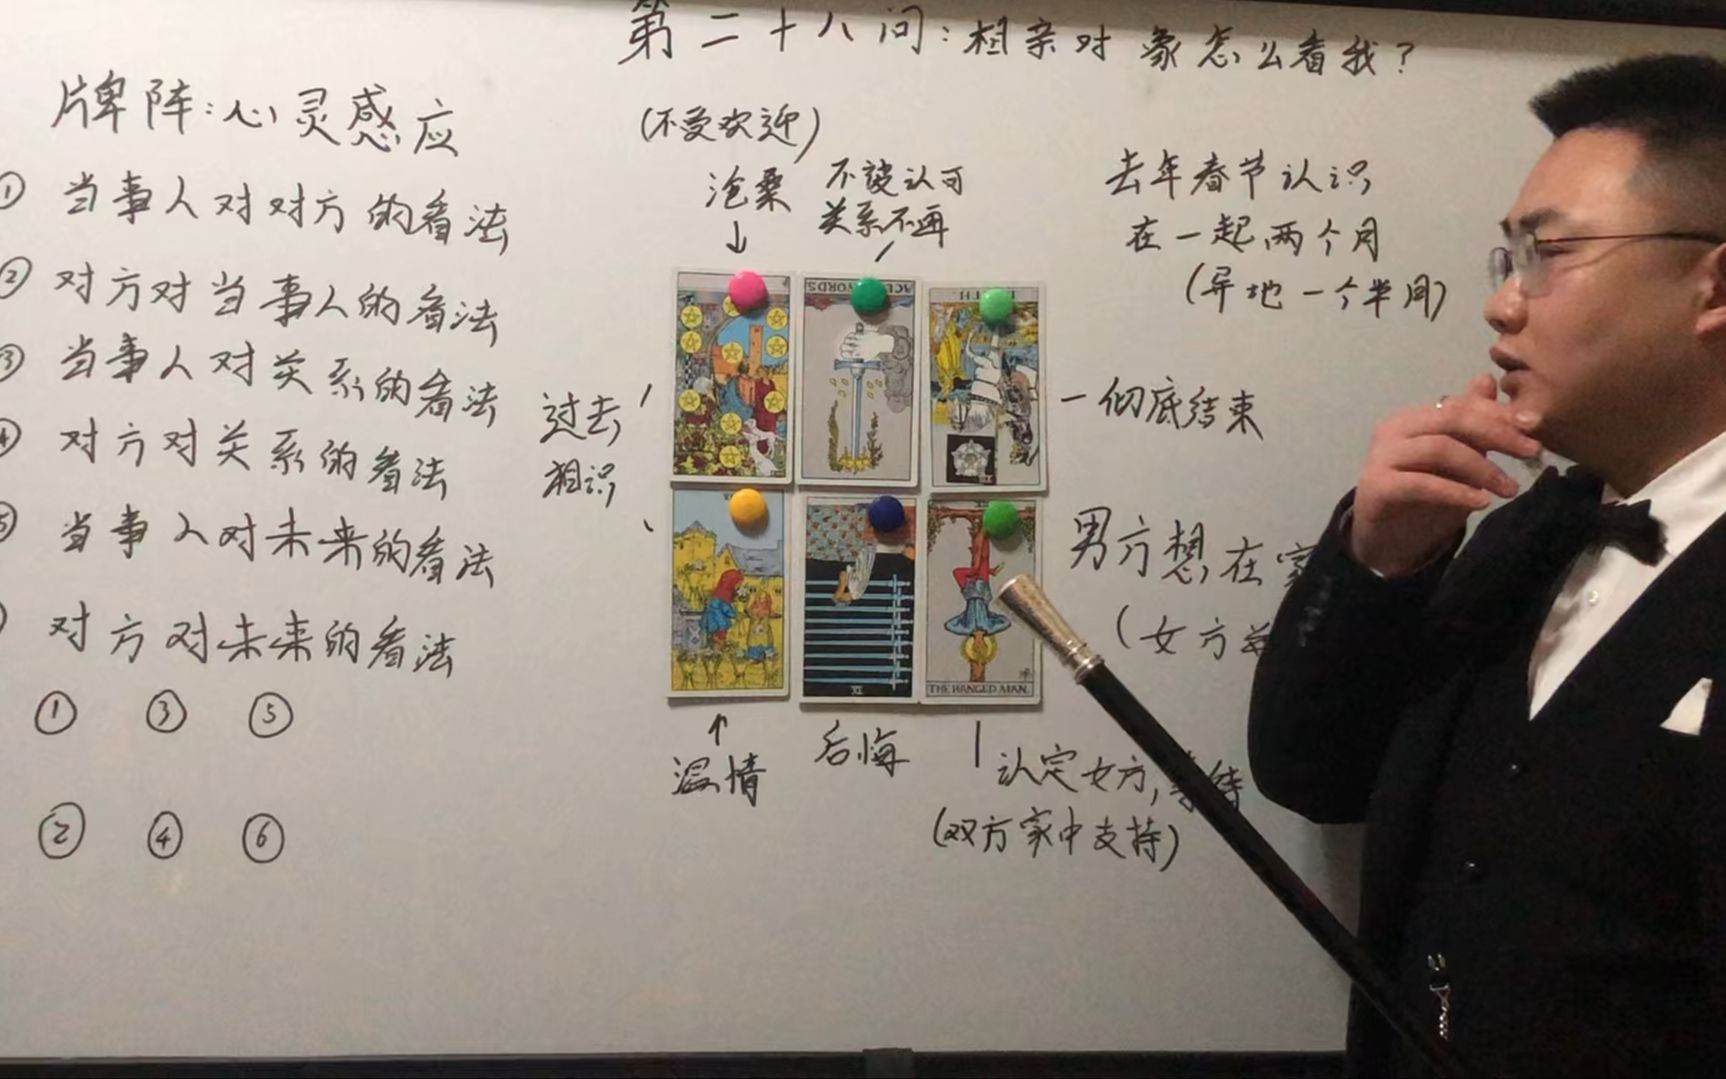 第二十八问：相亲对象怎么看我？
牌阵：心灵感应
① 当事人对对方的看法
② 对方对当事人的看法
③ 当事人对关系的看法
④ 对方对关系的看法
⑤ 当事人对未来的看法
对方对未来的看法
① ③ ⑤
② ④ ⑥
(不受欢迎)
沧桑
不被认可
关系不再
去年春节认识
在一起两个月
(异地一个半月)
过去
相识
ACE SWORDS
XIII
彻底结束
XI
THE HANGED MAN.
男方想在家
(女方
温情
后悔
认定女方，等待
(双方家中支持)